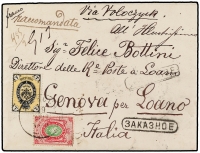 Raccomandata
Via Voloczysk
All' Illustrissimo
Sigr Felice Bottini
Direttore delle Re Poste a Loano
Genova per Loano
Italia
ЗАКАЗНОЕ